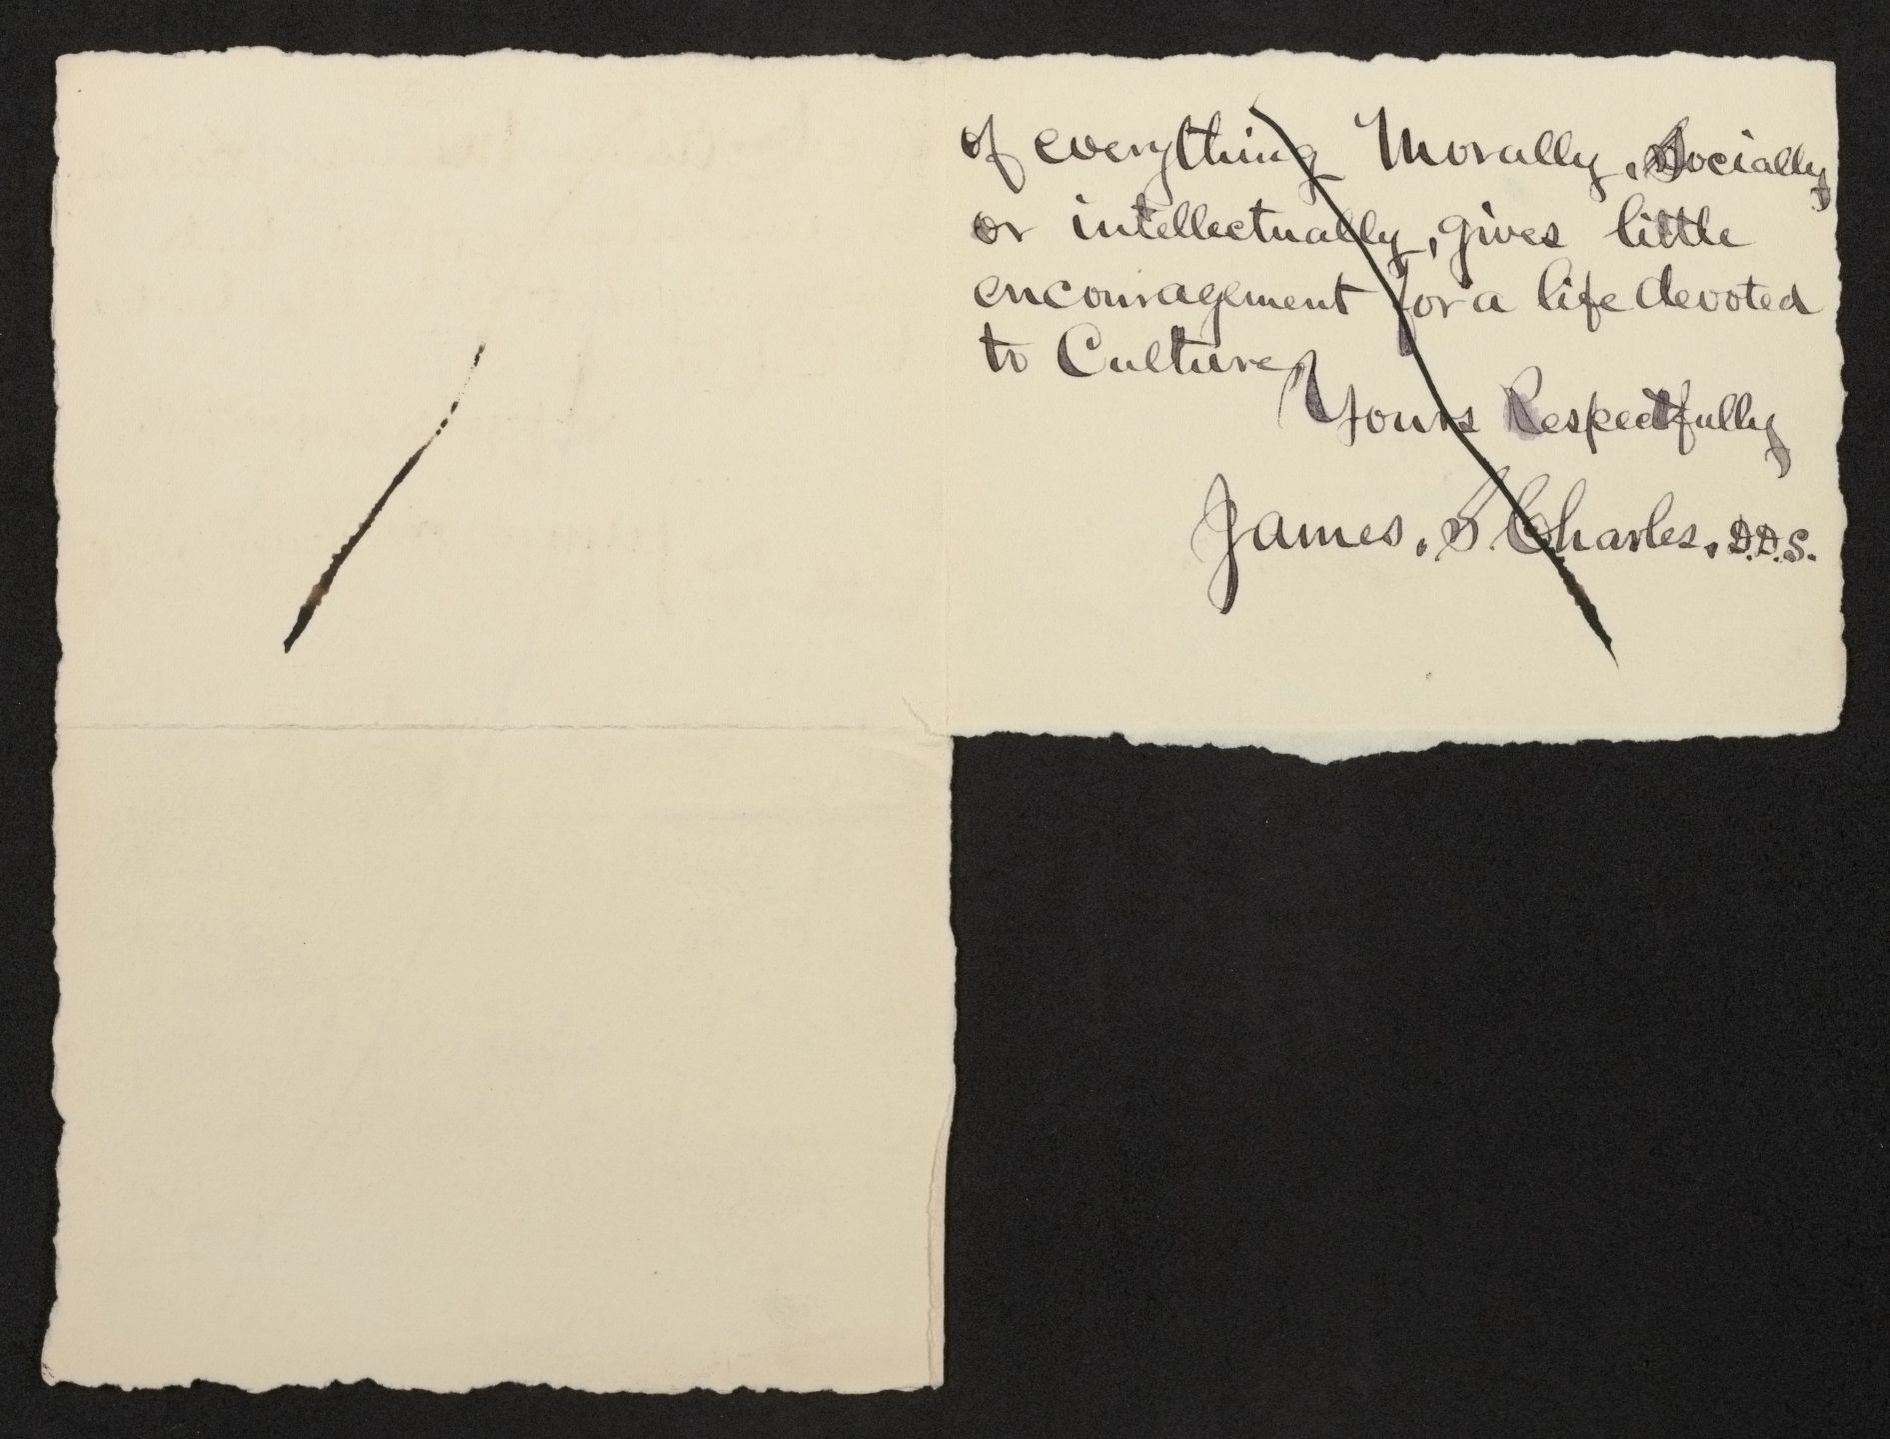 of everything Morally, Socially
or intellectually, gives little
encouragement for a life devoted
to Culture,
Yours Respectfully
James. S. Charles. D.D.S.